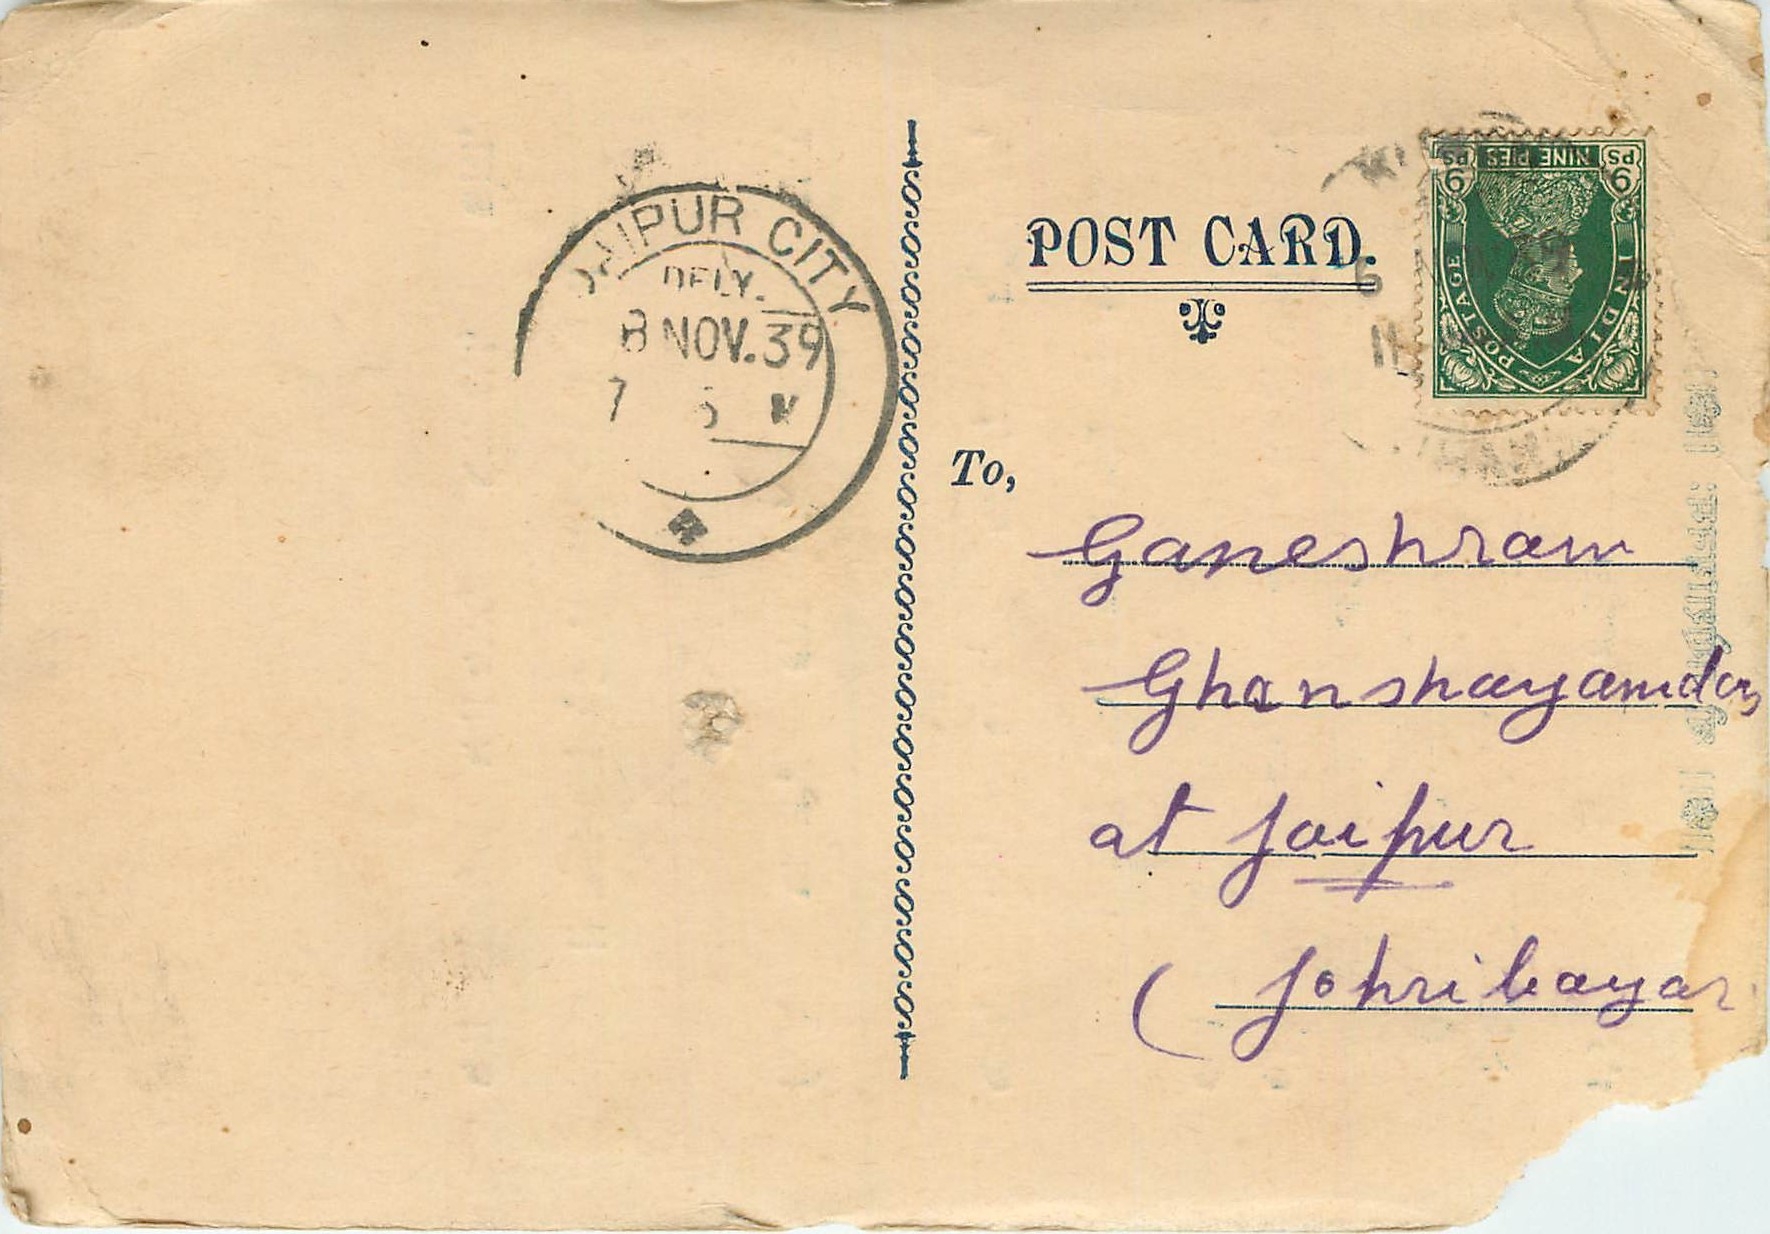 JAIPUR CITY
DELY.
8 NOV. 39
7
POST CARD.
NINE PIES
9 PS
9 PS
INDIA
POSTAGE
To,
Ganeshram
Ghanshayamdas
at Jaipur
( Johribayar